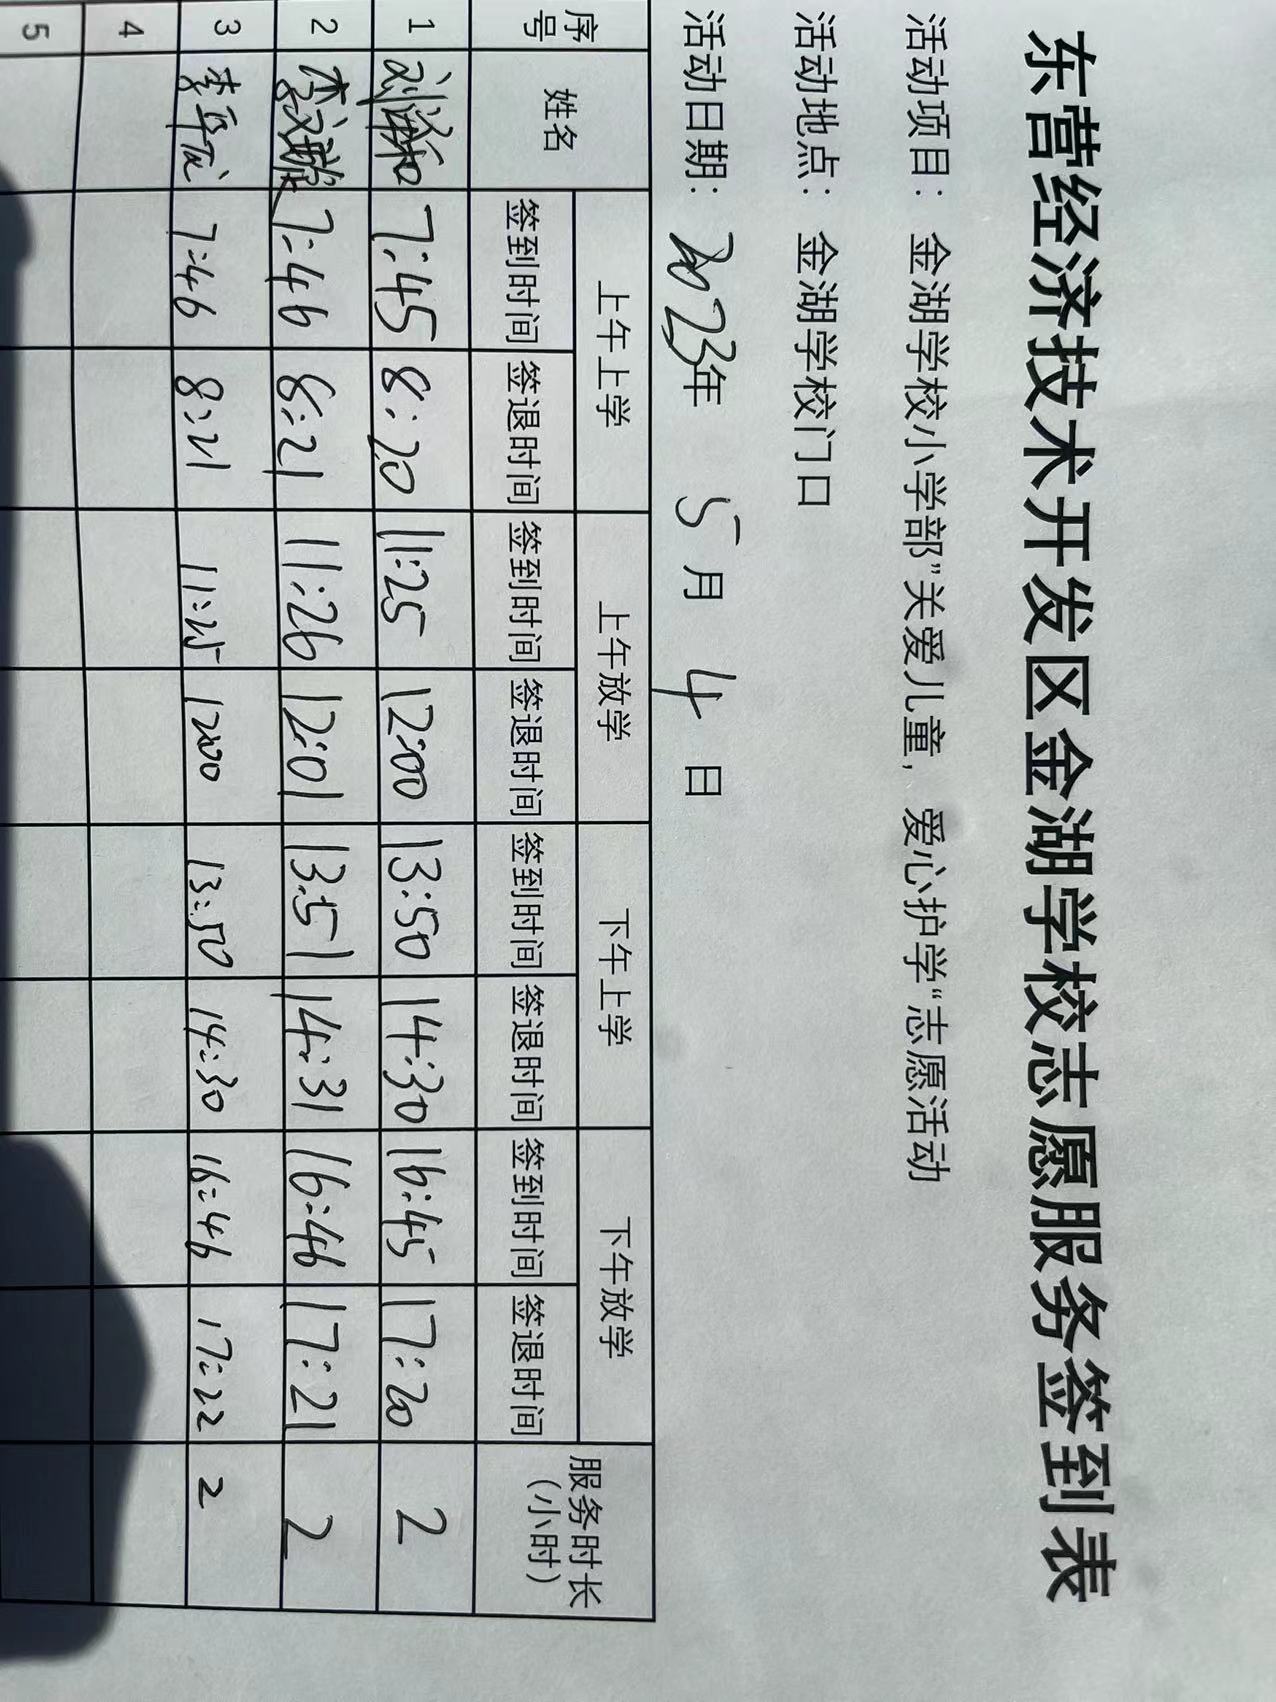 东营经济技术开发区金湖学校志愿服务签到表
活动项目： 金湖学校小学部”关爱儿童，爱心护学“志愿活动
活动地点： 金湖学校门口
活动日期： 2023年 5 月 4 日
序号 姓名 上午上学 上午放学 下午上学 下午放学 服务时长（小时）
签到时间 签退时间 签到时间 签退时间 签到时间 签退时间 签到时间 签退时间
1 7:45 8:20 11:25 12:00 13:50 14:30 16:45 17:20 2
2 7:46 8:21 11:26 12:01 13:51 14:31 16:46 17:21 2
3 7:46 8:21 11:25 12:00 13:50 14:30 16:46 17:22 2
4
5